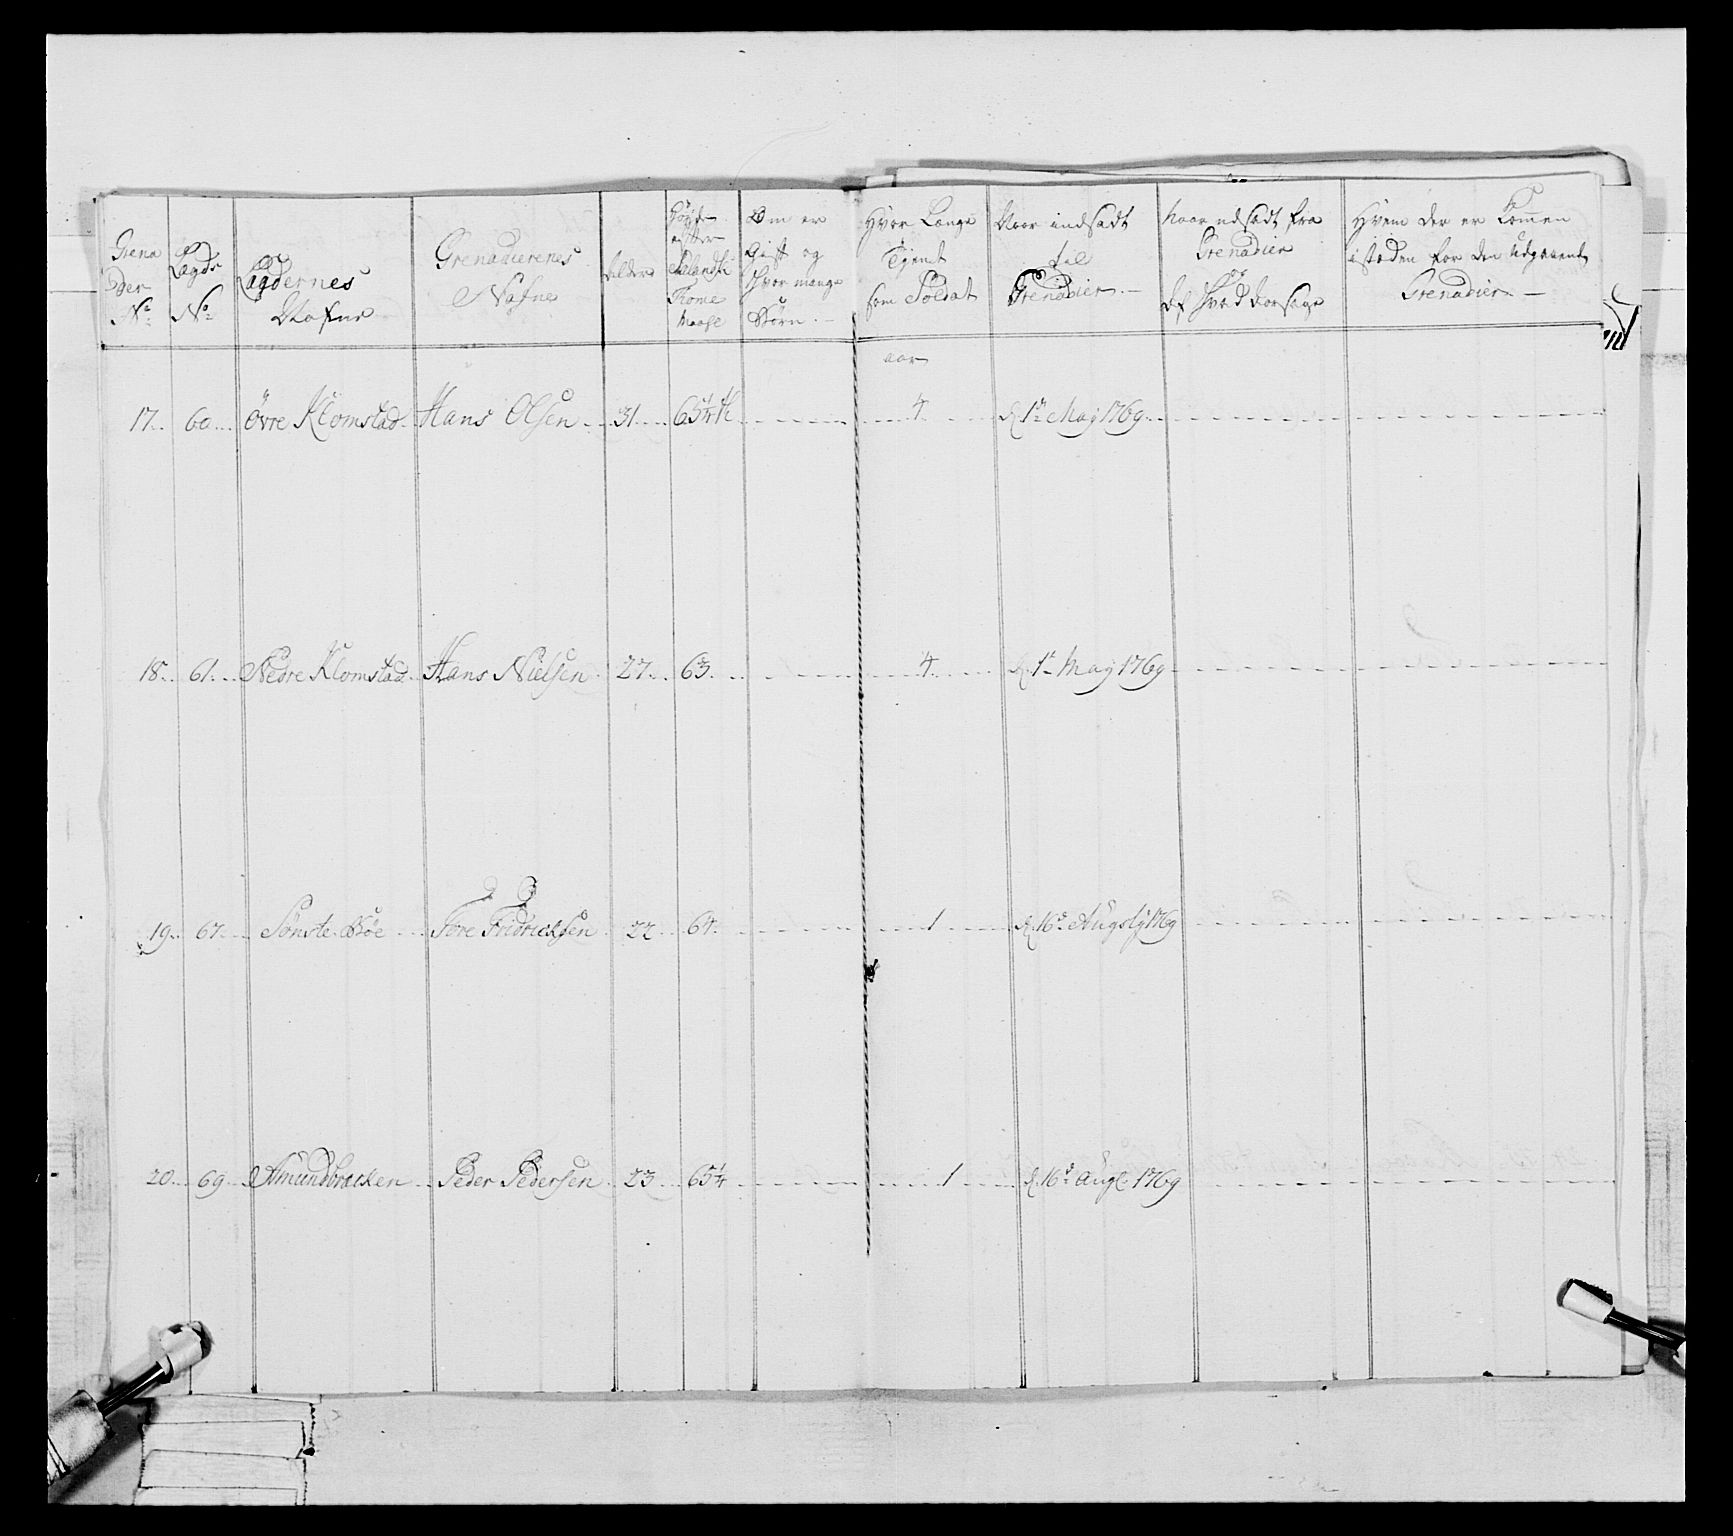 Grena
der
No
Lægds
No
Lægdernes
Nafne
Grenadierenes
Nafne
Alder
Høyde
efter
Sælandsk
Kome
Maass
Om er
Gift og
Hvor mange
Børn.
Hvor Længe
Tjent
som Soldat
Naar indsadt
til
Grenadier.
Naar udsadt fra
Grenadier
og
af Hvad Aarsage
Hvem der er Kommen
istæden for den udgaaende
Grenadier
aar
17. 60. Øvre Klomstad. Hans Olsen. 31. 65 1/4 4. d. 1te Maÿ 1769.
18. 61. Nedre Klomstad. Hans Nielsen. 27. 63. 4. d. 1te Maÿ 1769
19. 67. Sønste Bøe Tore Fridricksen 22 64. 1 d. 16de Augstÿ 1769
20. 69. Amundbracken Peder Pedersen 23 65 1/4 1 d. 16de Augs. 1769